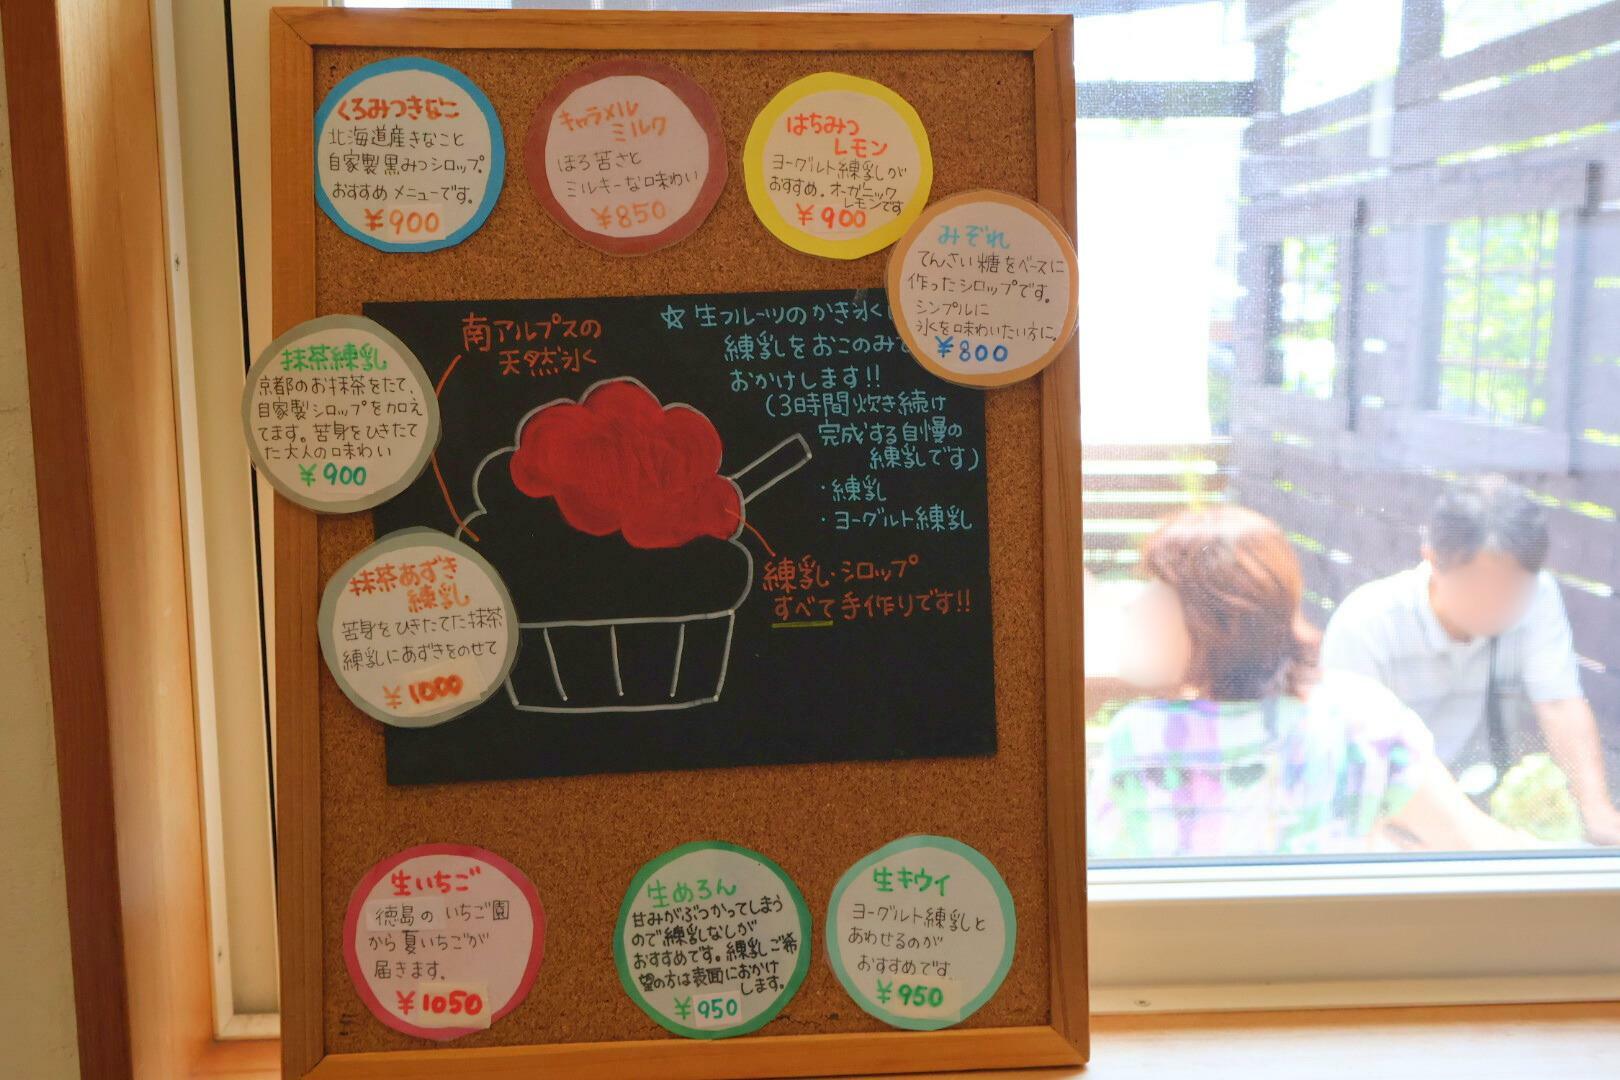 くろみつきなこ
北海道産きなこと
自家製黒みつシロップ。
おすすめメニューです。
¥900
キャラメル
ミルク
ほろ苦さと
ミルキーな味わい
¥850
はちみつ
レモン
ヨーグルト練乳が
おすすめ。オーガニック
レモンです
¥900
みぞれ
てんさい糖をベースに
作ったシロップです。
シンプルに
氷を味わいたい方に。
¥800
抹茶練乳
京都のお抹茶をたて、
自家製シロップを加え
てます。苦身をひきたて
た大人の味わい
¥900
南アルプスの
天然氷
☆生フルーツのかき氷
練乳をおこのみで
おかけします!!
(3時間炊き続け
完成する自慢の
練乳です)
・練乳
・ヨーグルト練乳
練乳・シロップ
すべて手作りです!!
抹茶あずき
練乳
苦身をひきたてた抹茶
練乳にあずきをのせて
¥1000
生いちご
徳島のいちご園
から夏いちごが
届きます。
¥1050
生めろん
甘みがぶつかってしまう
ので練乳なしが
おすすめです。練乳ご希
望の方は表面におかけ
します。
¥950
生キウイ
ヨーグルト練乳と
あわせるのが
おすすめです。
¥950